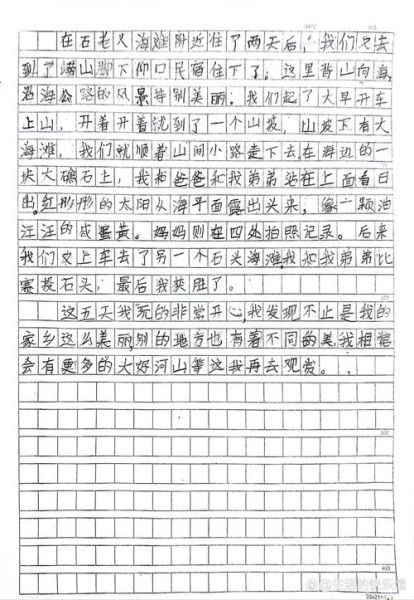 在石老人海滩附近住了两天后，我们又去
到了崂山脚下仰口民宿住下了，这里背山向海，
沿海公路的风景特别美丽，我们起了大早开车
上山，开着开着就到了一个山坡，山坡下有大
海滩，我们就顺着山间小路走下去，在海边的一
块大礁石上，我和爸爸和我弟弟站在上面看日
出，红彤彤的太阳从海平面露出头来，像一颗油
汪汪的咸蛋黄。妈妈则在四处拍照记录。后来
我们又上车去了另一个石头海滩，我和我弟弟比
赛投石头，最后我获胜了。
这五天我玩的非常开心，我发现不止是我的
家乡这么美丽，别的地方也有着不同的美，我相信
会有更多的大好河山等这我再去观赏。
300
400